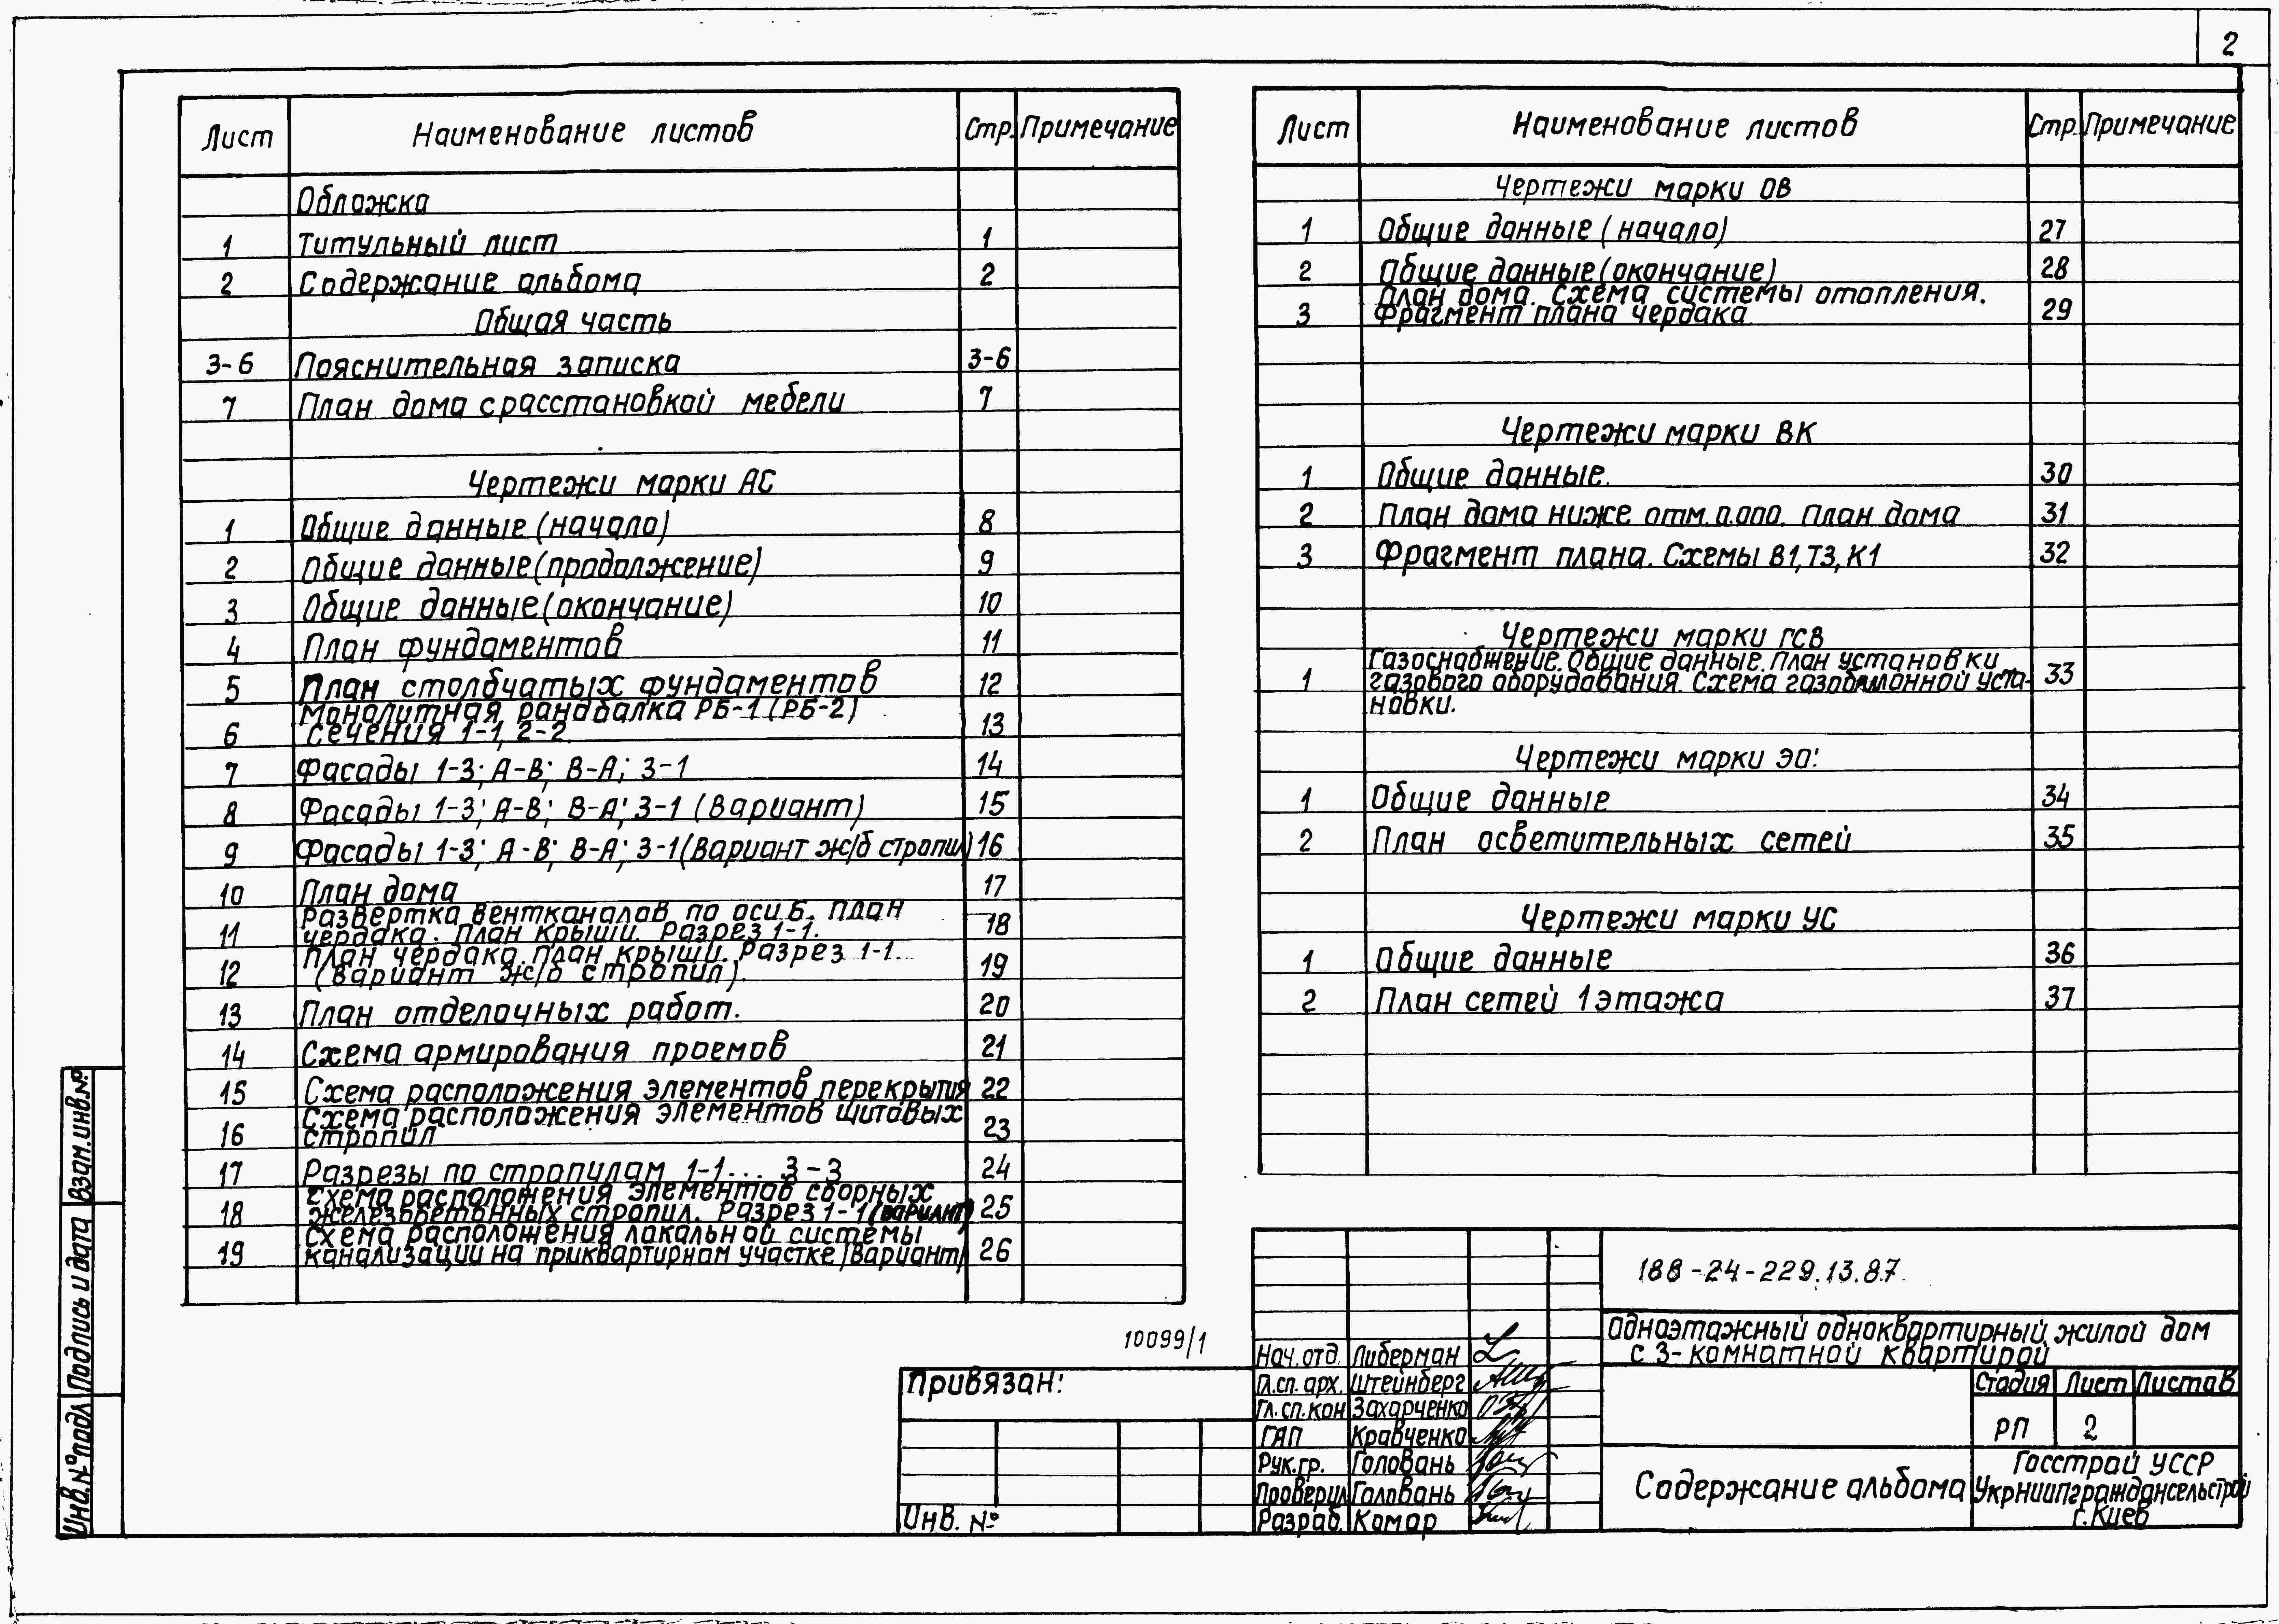 2
Лист Наименование листов Стр. Примечание
Обложка
1 Титульный лист 1
2 Содержание альбома 2
Общая часть
3-6 Пояснительная записка 3-6
7 План дома с расстановкой мебели 7
Чертежи марки АС
1 Общие данные (начало) 8
2 Общие данные (продолжение) 9
3 Общие данные (окончание) 10
4 План фундаментов 11
5 План столбчатых фундаментов 12
Монолитная рандбалка РБ-1 (РБ-2)
6 сечения 1-1, 2-2 13
7 Фасады 1-3; А-В; В-А; 3-1 14
8 Фасады 1-3; А-В; В-А; 3-1 (Вариант) 15
9 Фасады 1-3; А-В; В-А; 3-1 (Вариант ж/б стропил) 16
10 План дома 17
Развертка вентканалов по оси Б. План
11 чердака. План крыши. Разрез 1-1. 18
План чердака. План крыши. Разрез 1-1.
12 (Вариант ж/б стропил). 19
13 План отделочных работ. 20
14 Схема армирования проемов 21
15 Схема расположения элементов перекрытия 22
Схема расположения элементов щитовых
16 стропил 23
17 Разрезы по стропилам 1-1... 3-3 24
Схема расположения элементов сборных
18 железобетонных стропил. Разрез 1-1 (вариант) 25
Схема расположения локальной системы
19 канализации на приквартирном участке (Вариант) 26
Лист Наименование листов Стр. Примечание
Чертежи марки ОВ
1 Общие данные (начало) 27
2 Общие данные (окончание) 28
План дома. Схема системы отопления.
3 Фрагмент плана чердака 29
Чертежи марки ВК
1 Общие данные. 30
2 План дома ниже отм. 0.000. План дома 31
3 Фрагмент плана. Схемы В1, Т3, К1 32
Чертежи марки ГСВ
Газоснабжение. Общие данные. План установки
1 газового оборудования. Схема газобаллонной уста- 33
новки.
Чертежи марки ЭО:
1 Общие данные 34
2 План осветительных сетей 35
Чертежи марки УС
1 Общие данные 36
2 План сетей 1 этажа 37
Взам. инв. №
Подпись и дата
Инв. № подл
10099/1
Привязан:
Инв. №
188-24-229.13.87
Одноэтажный одноквартирный жилой дом
с 3-комнатной квартирой
Нач. отд. Либерман
Гл. сп. арх. Штейнберг
Гл. сп. кон Захарченко
ГАП Кравченко
Рук. гр. Головань
Проверил Головань
Разраб. Комар
Стадия Лист Листов
РП 2
Содержание альбома
Госстрой УССР
УкрНИИПграждансельстрой
г. Киев